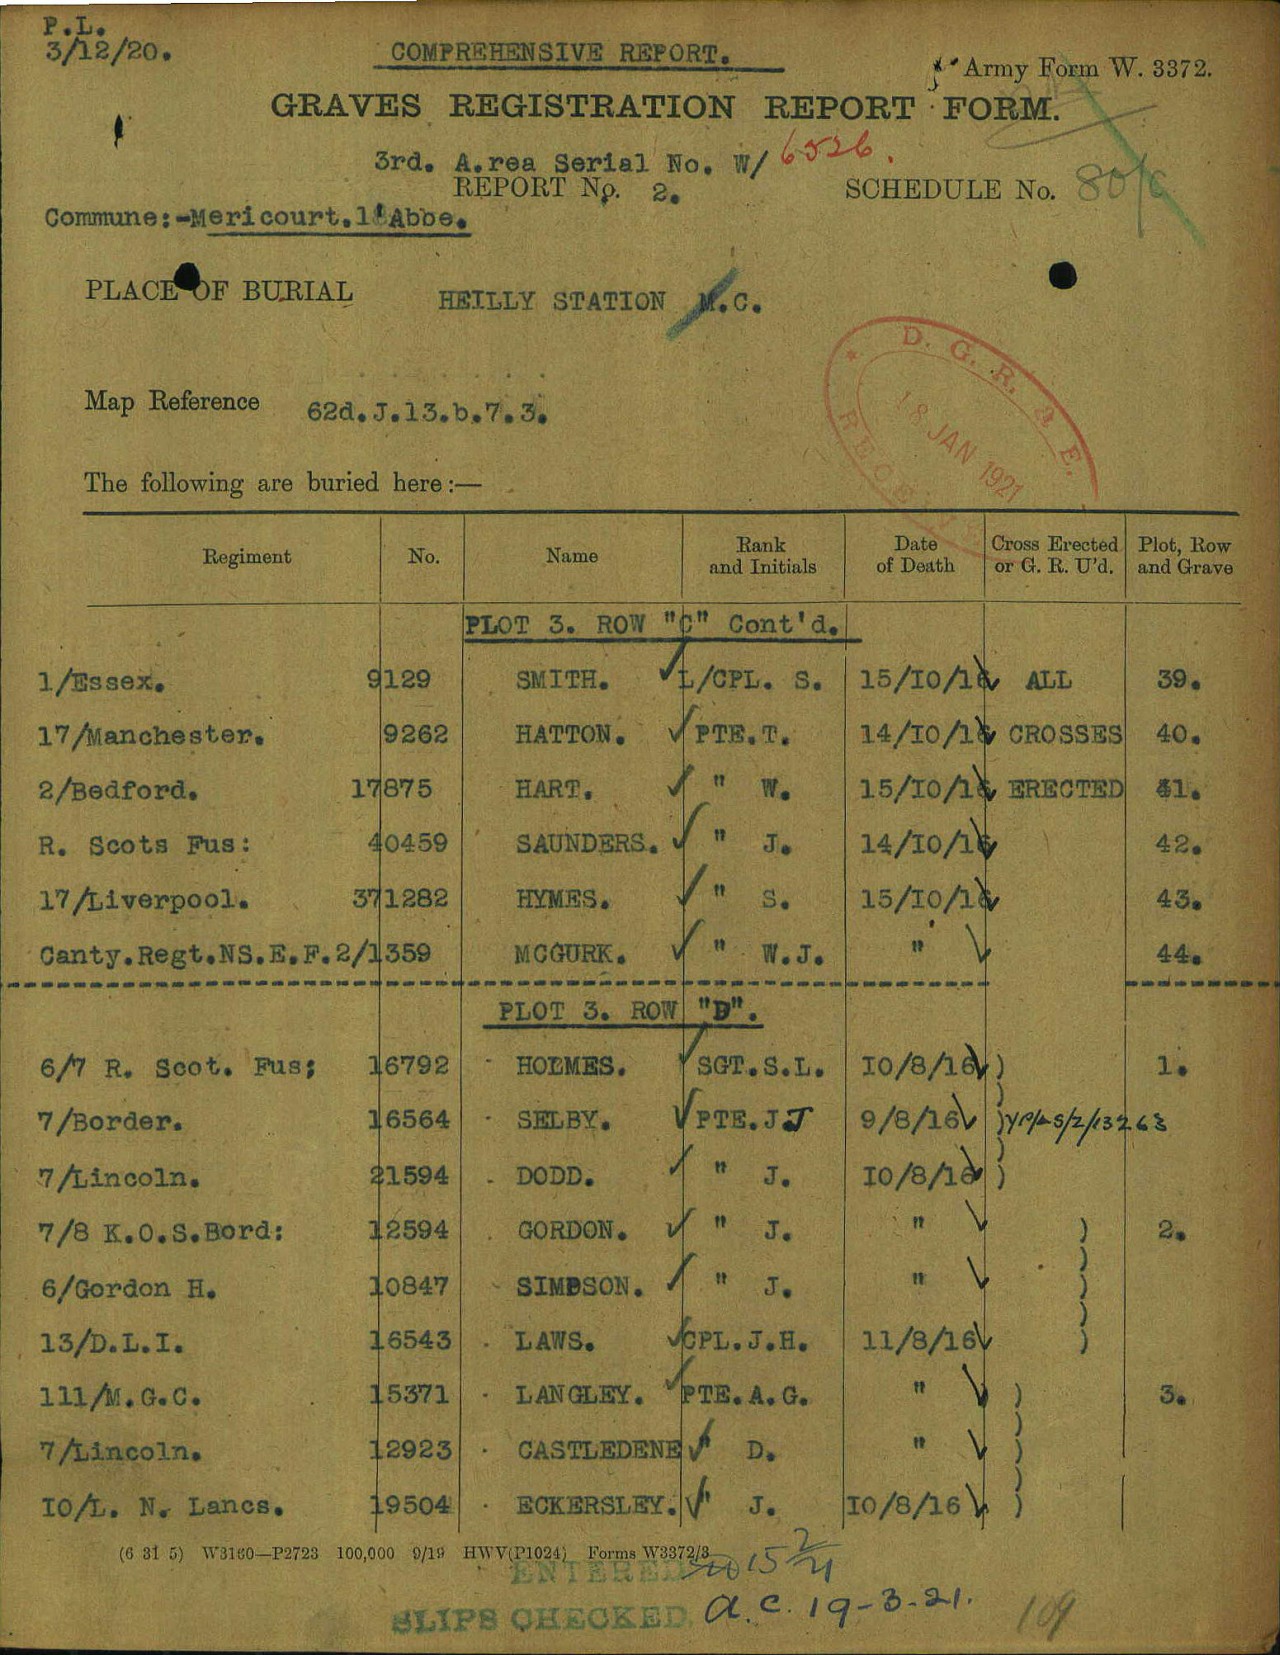 P.L.
3/12/20.
COMPREHENSIVE REPORT.
Army Form W. 3372.
GRAVES REGISTRATION REPORT FORM.
3rd. A.rea Serial No. W/ 6526.
REPORT No. 2.
SCHEDULE No. 80/c
Commune:-Mericourt.l'Abbe.
PLACE OF BURIAL HEILLY STATION M.C.
D. G. R. & E.
18 JAN 1921
Map Reference 62d.J.13.b.7.3.
The following are buried here:—
Regiment No. Name Rank and Initials Date of Death Cross Erected or G. R. U'd. Plot, Row and Grave
PLOT 3. ROW "C" Cont'd.
1/Essex. 9129 SMITH. L/CPL. S. 15/IO/16 ALL 39.
17/Manchester. 9262 HATTON. PTE.T. 14/IO/16 CROSSES 40.
2/Bedford. 17875 HART. " W. 15/IO/16 ERECTED 41.
R. Scots Fus: 40459 SAUNDERS. " J. 14/IO/16 42.
17/Liverpool. 371282 HYMES. " S. 15/IO/16 43.
Canty.Regt.NS.E.F.2/1359 MCGURK. " W.J. " 44.
PLOT 3. ROW "D".
6/7 R. Scot. Fus; 16792 HOLMES. SGT.S.L. IO/8/16 ) 1.
7/Border. 16564 SELBY. PTE.J J 9/8/16 )
7/Lincoln. 21594 DODD. " J. IO/8/16 )
7/8 K.O.S.Bord: 12594 GORDON. " J. " ) 2.
6/Gordon H. 10847 SIMPSON. " J. " )
13/D.L.I. 16543 LAWS. CPL.J.H. 11/8/16 )
111/M.G.C. 15371 LANGLEY. PTE.A.G. " ) 3.
7/Lincoln. 12923 CASTLEDENE " D. " )
IO/L. N. Lancs. 19504 ECKERSLEY. " J. IO/8/16 )
(6 31 5) W3160—P2723 100,000 9/19 HWV(P1024) Forms W3372/3
ENTERED 15 2/21
SLIPS CHECKED. a.c. 19-3-21.
109